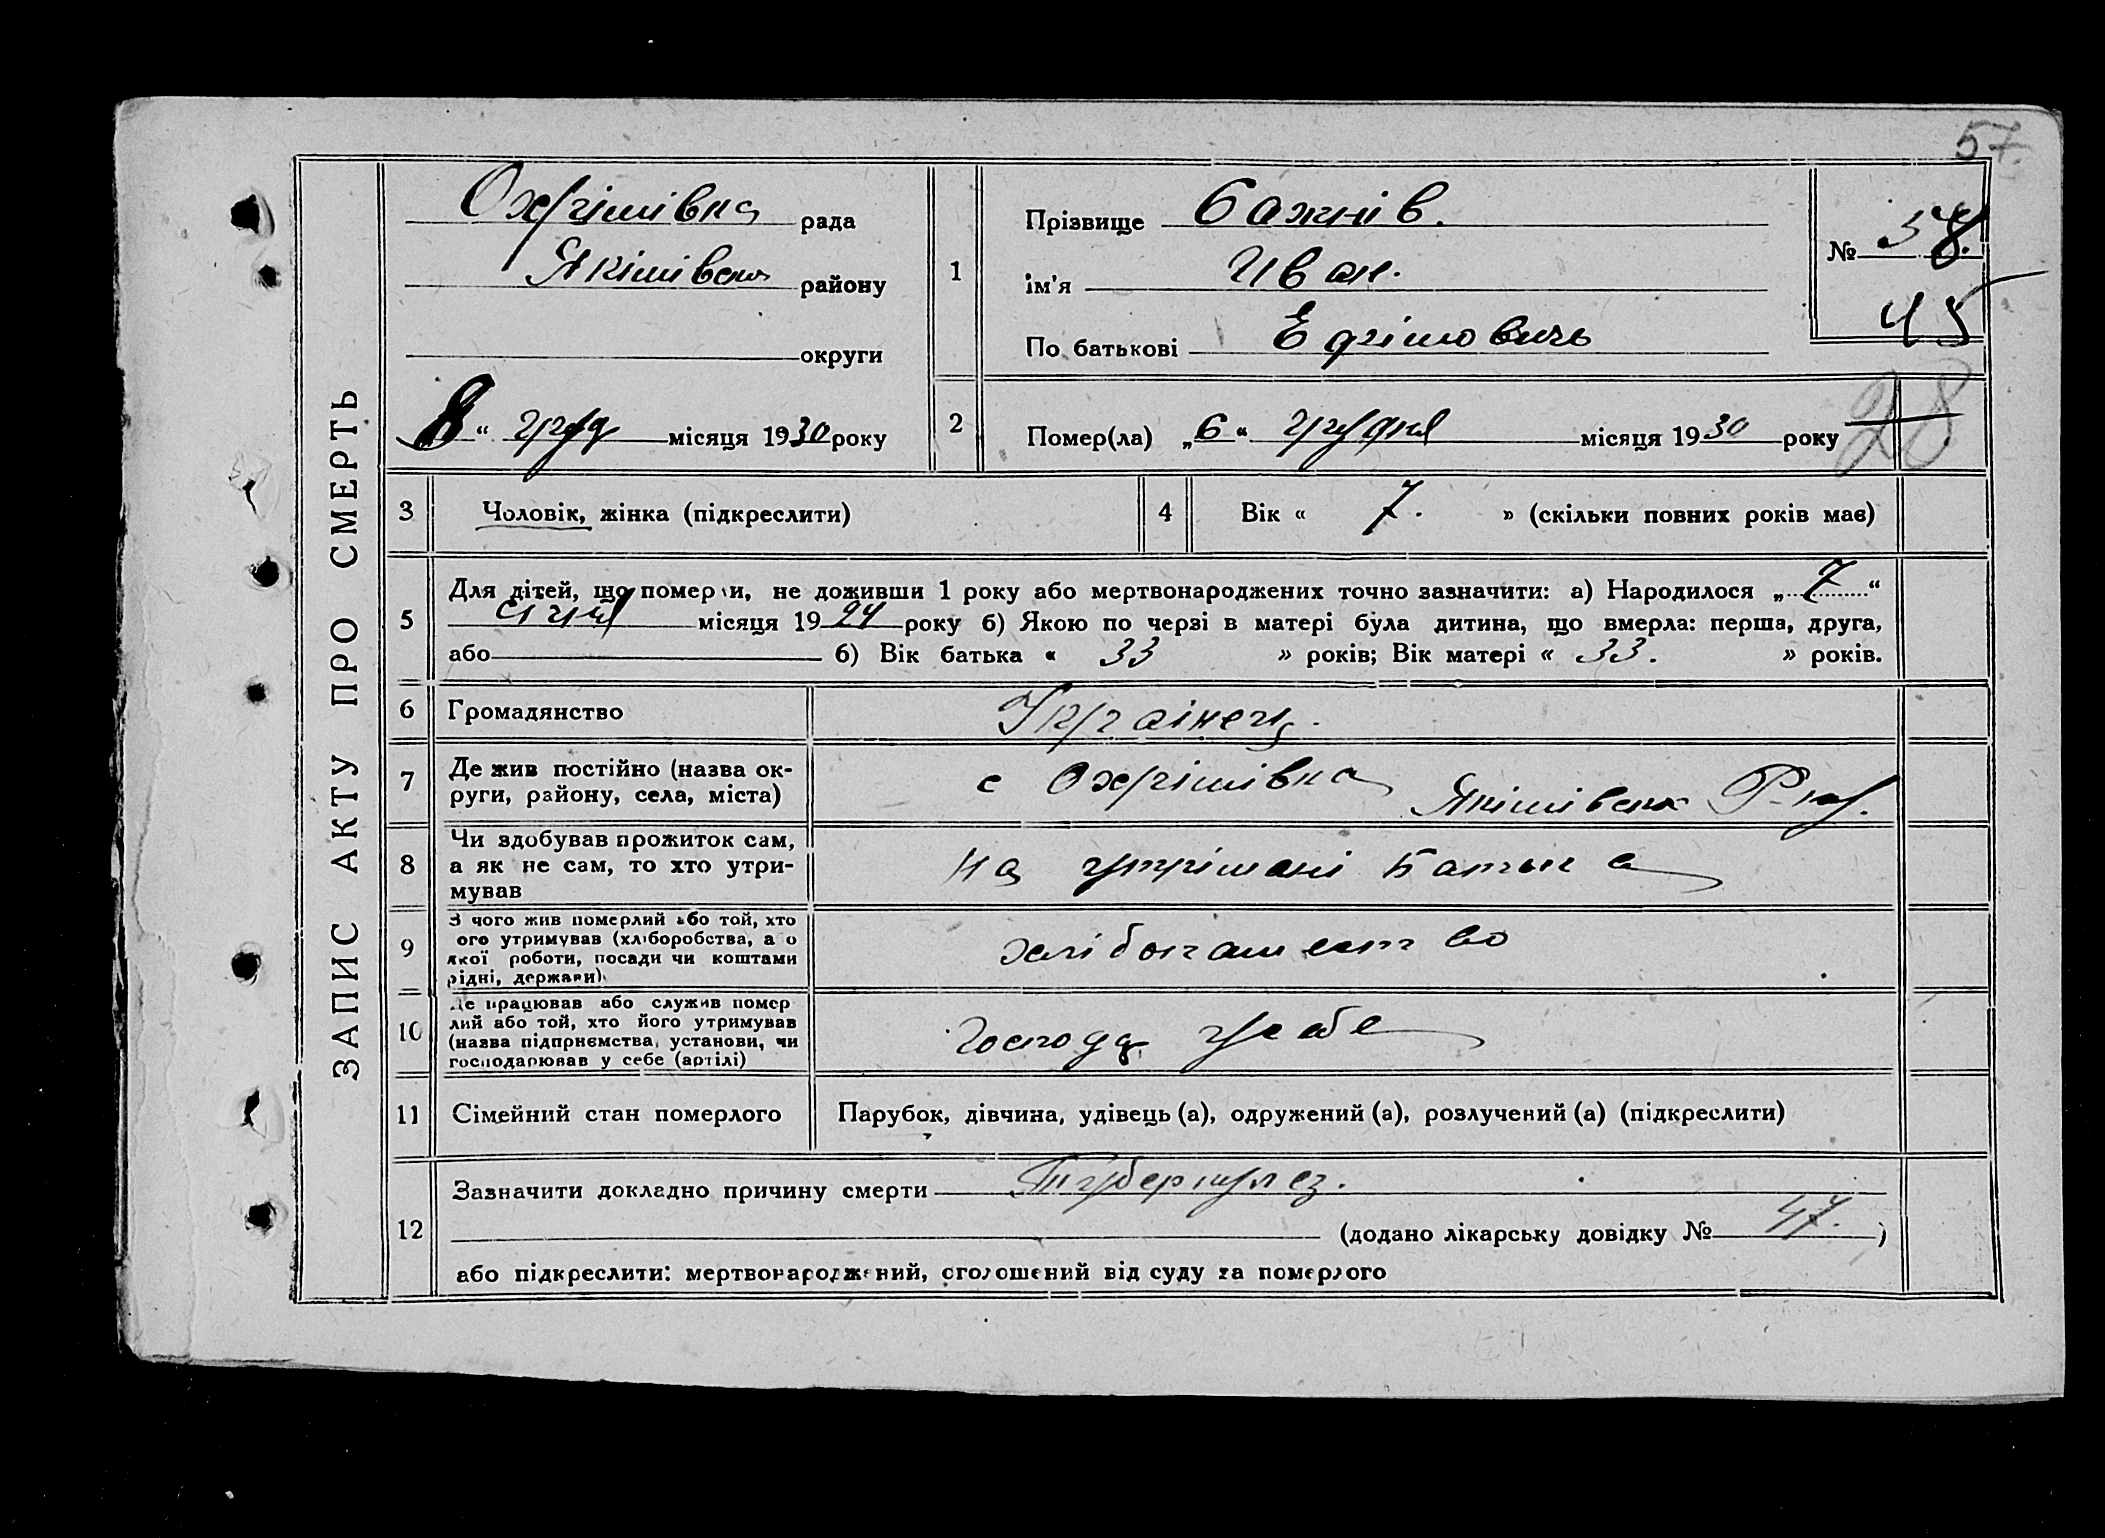 57.
ЗАПИС АКТУ ПРО СМЕРТЬ
Охрімівка рада
Якімівськ району
округи
8 “ груд місяця 1930 року
1
Прізвище Бажнів.
ім'я Иван.
По батькові Ефімовичь
№ 38.
45
28
2
Помер(ла) „6“ грудня місяця 1930 року
3 Чоловік, жінка (підкреслити)
4 Вік « 7. » (скільки повних років має)
5
Для дітей, що померли, не доживши 1 року або мертвонароджених точно зазначити: а) Народилося „7“
січня місяця 1924 року б) Якою по черзі в матері була дитина, що вмерла: перша, друга,
або б) Вік батька « 33 » років; Вік матері « 33. » років.
6 Громадянство Украінец.
7
Де жив постійно (назва ок-
руги, району, села, міста)
с Охрімівка Якімівськ Р-ну.
8
Чи здобував прожиток сам,
а як не сам, то хто утри-
мував
на утрімані батька
9
З чого жив померлий або той, хто
ого утримував (хліборобства, а о
якої роботи, посади чи коштами
рідні, держави)
хлібопашество
10
Де працював або служив помер
лий або той, хто його утримував
(назва підприємства, установи, чи
господарював у себе (артілі)
Господ. у себе
11 Сімейний стан померлого Парубок, дівчина, удівець (а), одружений (а), розлучений (а) (підкреслити)
12
Зазначити докладно причину смерти Туберкулез.
(додано лікарську довідку № 47. )
або підкреслити: мертвонароджений, оголошений від суду за померлого